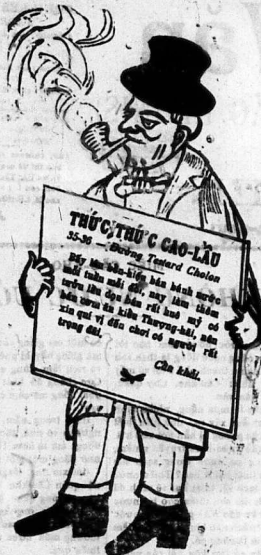 THỨC, THỨC CAO-LÂU
35-36 — Đường Testard Cholon
Bấy lâu bổn-kiếng bán bánh nước
mỗi tuần mỗi đắt, nay lại thêm
rượu lâu dọn bán rất huê mỹ có
bán cơm ăn kiểu Thượng-hải, nên
xin quí vị đến chơi có người rất
trọng đãi.
Cẩn khải.